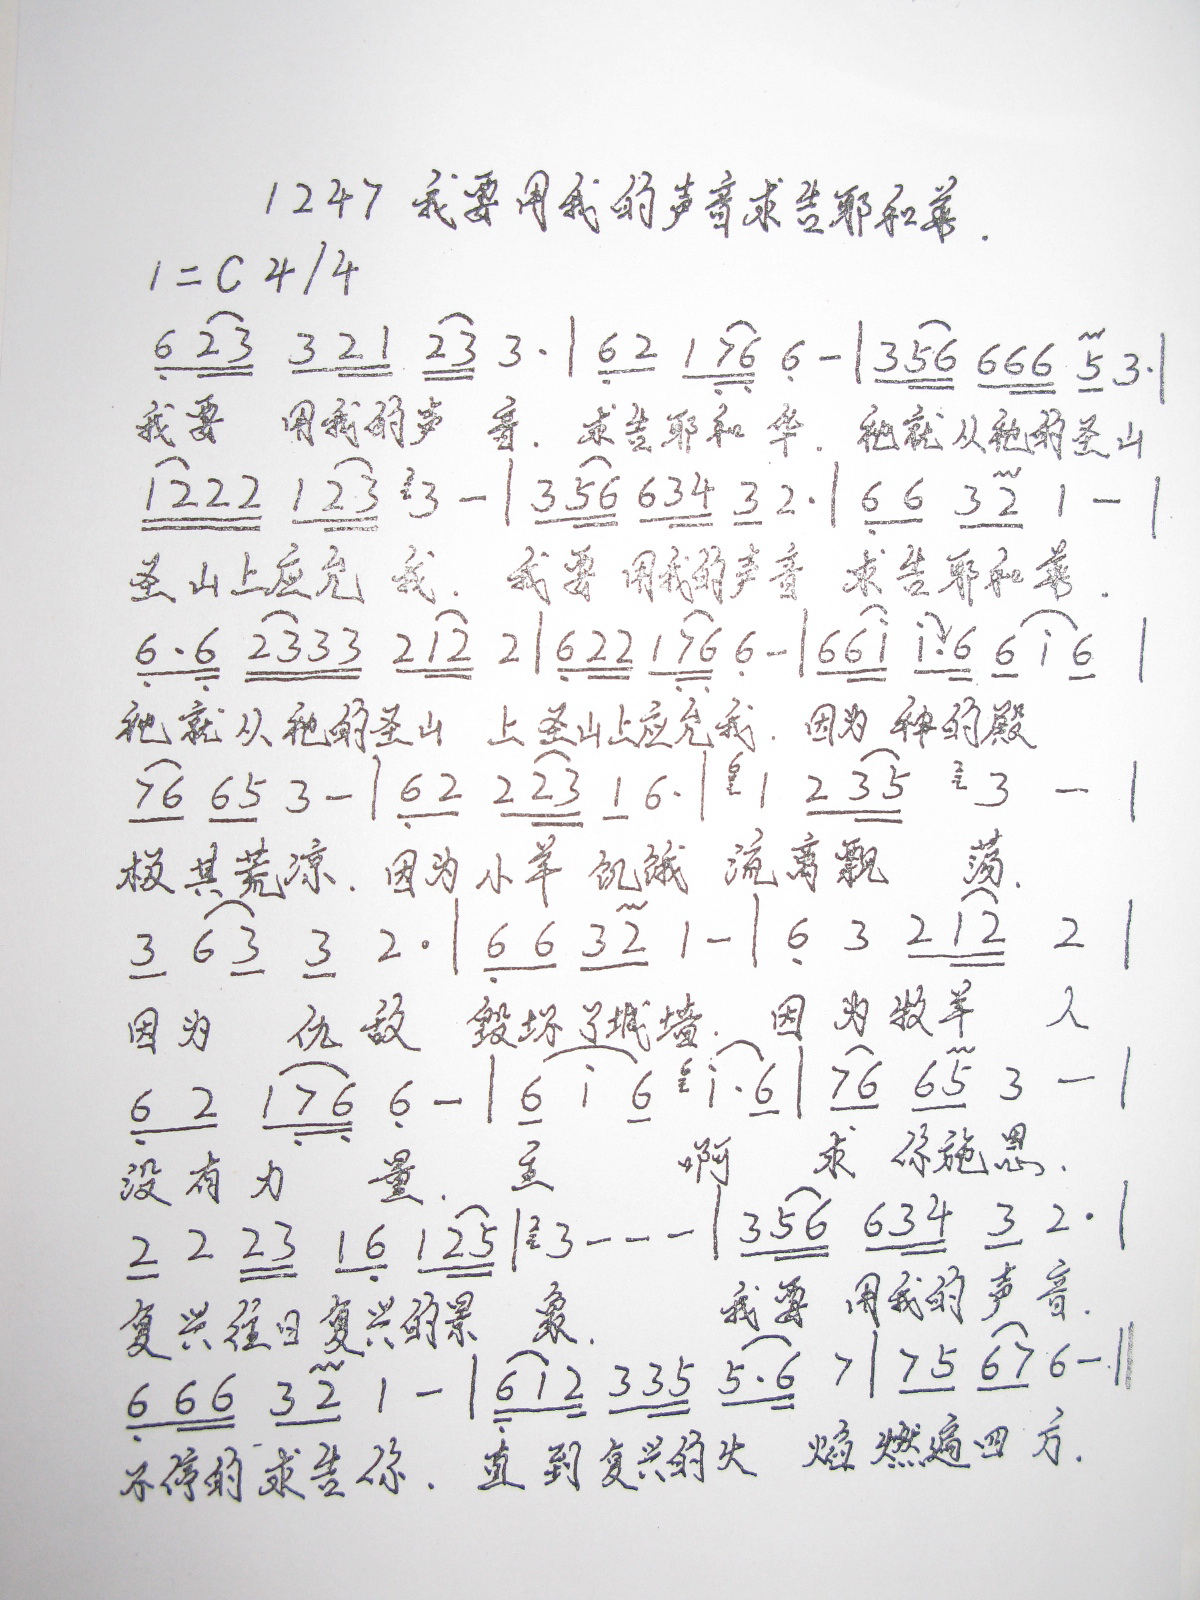 1247 我要用我的声音求告耶和华.
1=C 4/4
6 23 321 23 3· | 62 176 6 - | 356 666 5 3· |
我要 用我的声 音. 求告耶和华. 祂就从祂的圣山
1222 123 3 - | 356 634 3 2· | 66 32 1 - |
圣山上应允 我. 我要用我的声音 求告耶和华.
6·6 2333 212 2 | 622 176 6 - | 66i i·6 6 i 6 |
祂就从祂的圣山 上圣山上应允我. 因为神的殿
76 65 3 - | 62 223 1 6· | 1 235 3 - |
极其荒凉. 因为小羊饥饿 流离飘 荡.
3 63 3 2· | 66 32 1 - | 6 3 212 2 |
因为 仇敌 毁坏了城墙. 因为牧羊 人
6 2 176 6 - | 6 i 6 i·6 | 76 65 3 - |
没有力 量. 主 啊 求你施恩.
2 2 23 16 125 | 3 - - - | 356 634 3 2· |
复兴往日复兴的景 象. 我要 用我的声音.
666 32 1 - | 612 335 5·6 7 | 75 67 6 - ‖
不停的求告你. 直到复兴的火 焰燃遍四方.